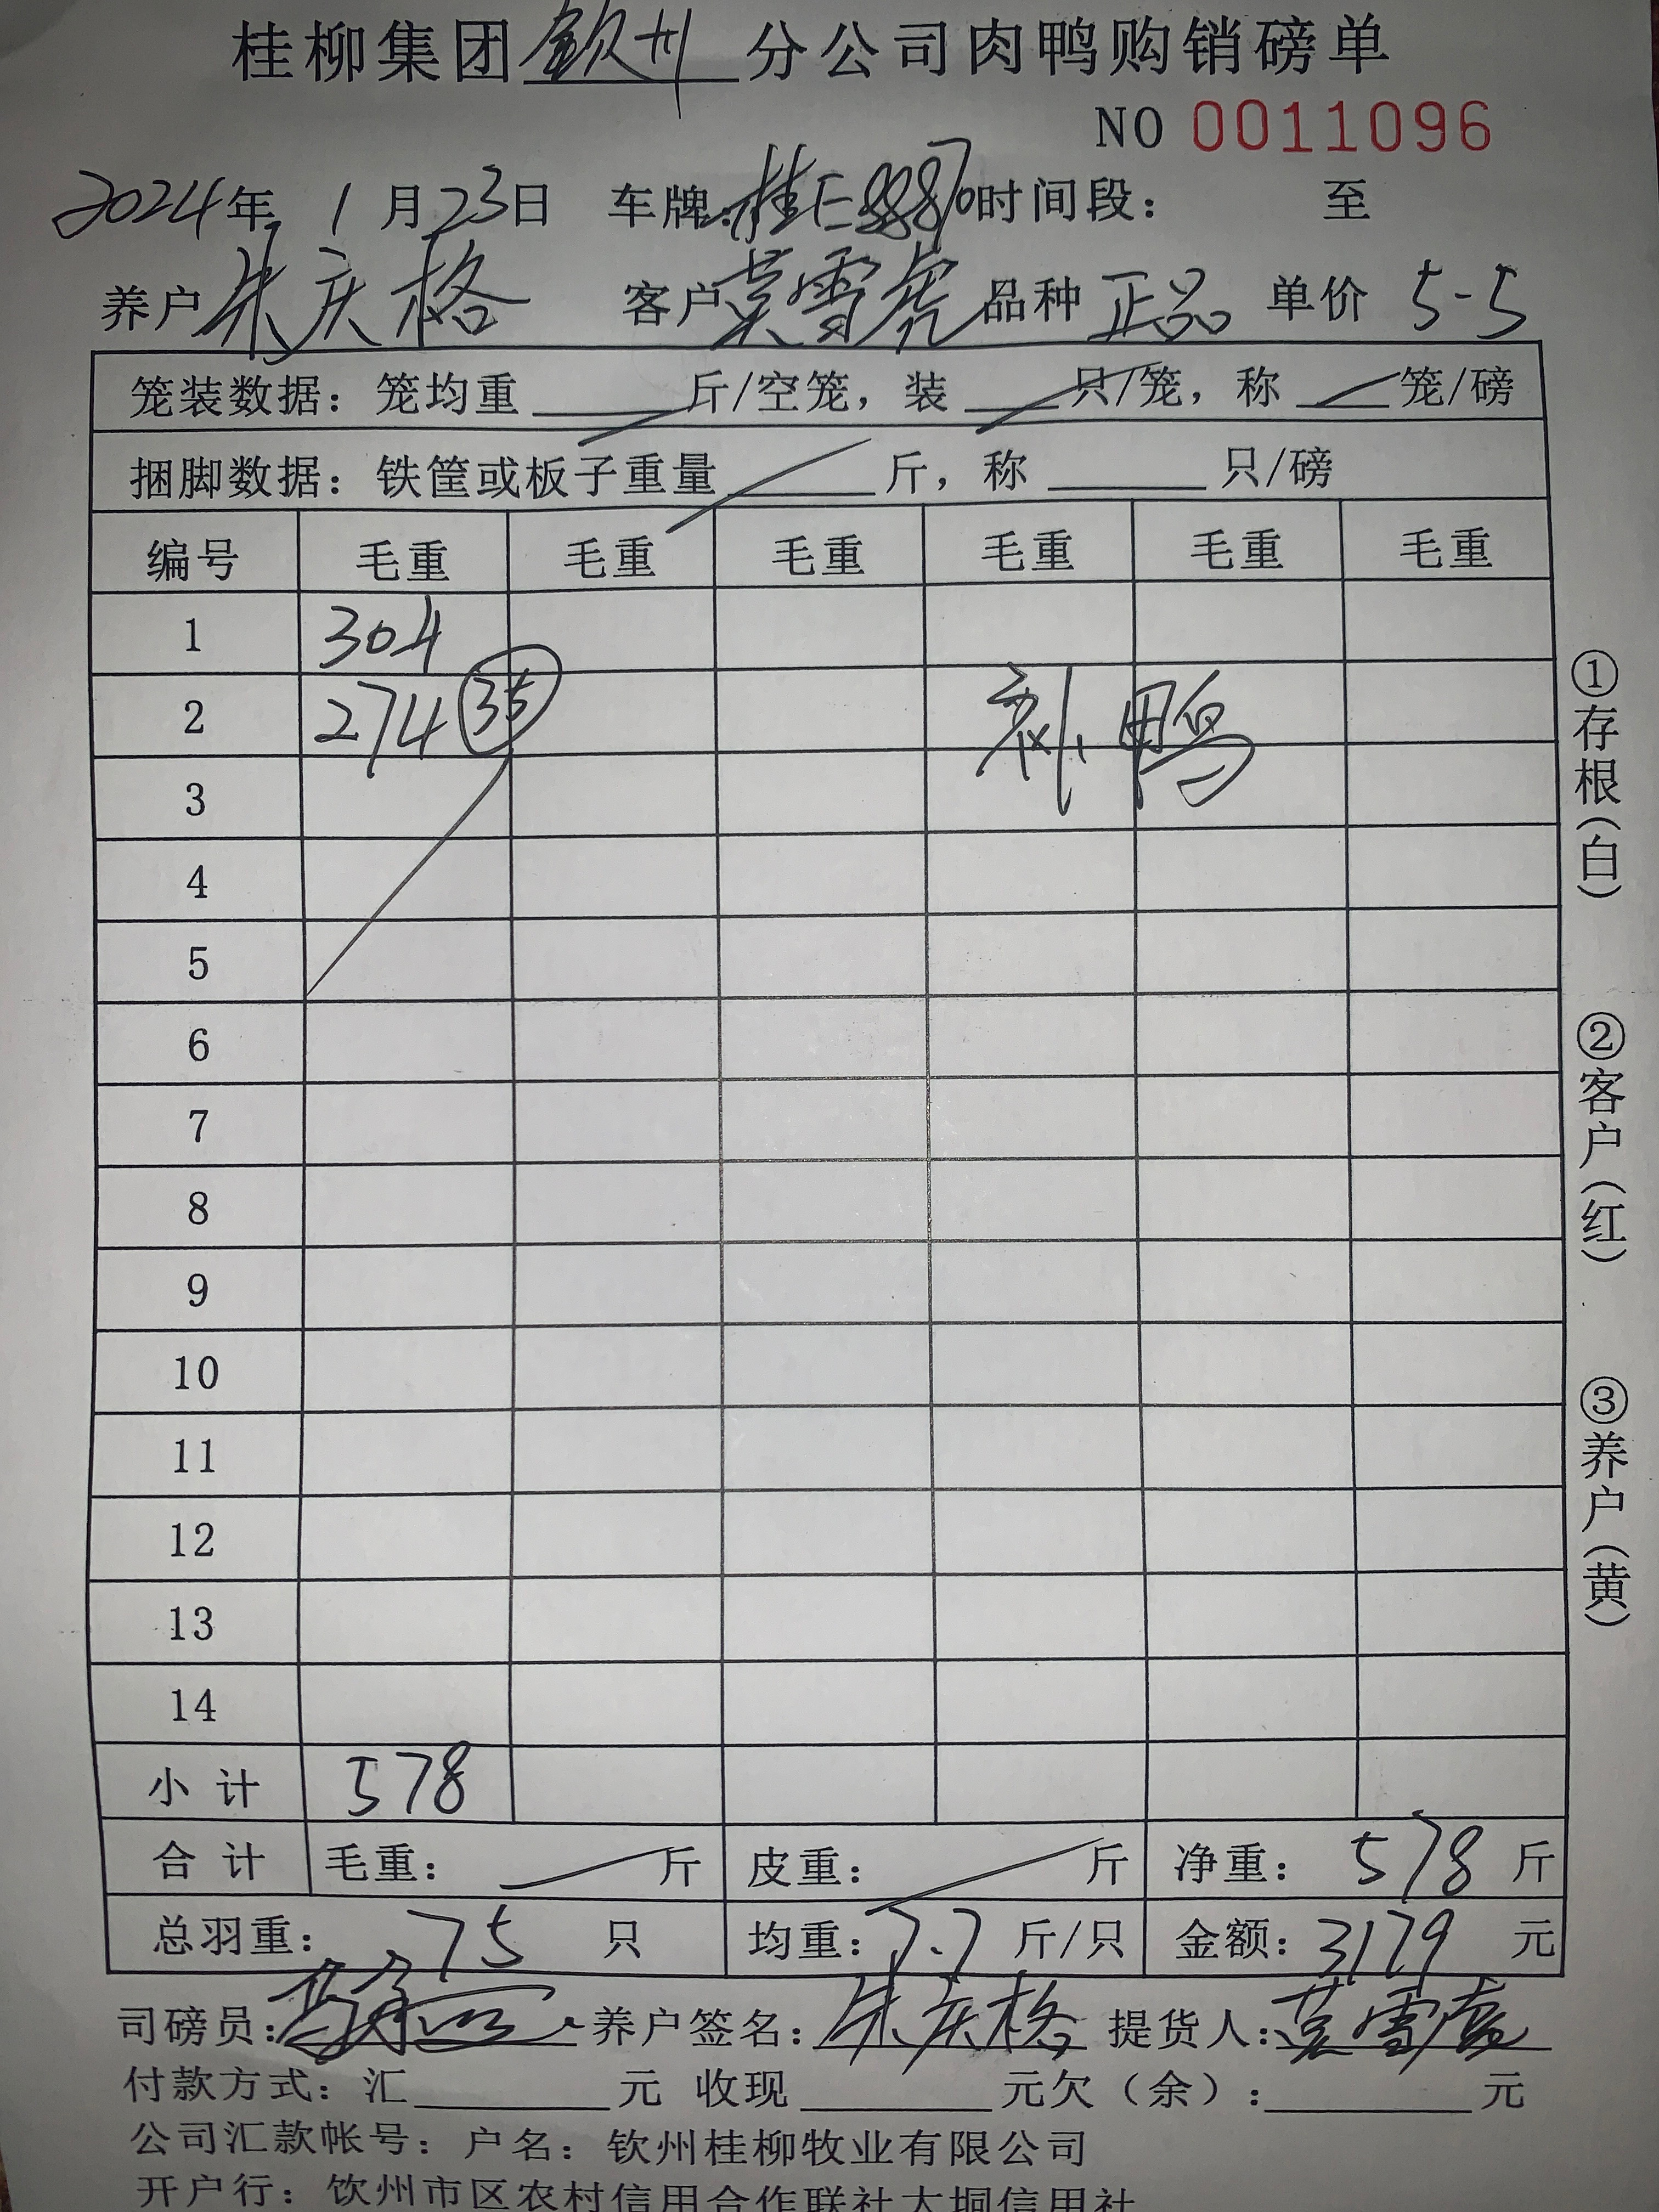 桂柳集团钦州分公司肉鸭购销磅单
NO 0011096
2024年1月23日 车牌:桂E88870时间段: 至
养户朱庆格 客户莫雪虎 品种正品 单价5-5
笼装数据:笼均重____斤/空笼,装____只/笼,称____笼/磅
捆脚数据:铁筐或板子重量____斤,称____只/磅
编号 毛重 毛重 毛重 毛重 毛重 毛重
1 304
2 274 35 鸭
3
4
5
6
7
8
9
10
11
12
13
14
小计 578
合计 毛重: 斤 皮重: 斤 净重:578斤
总羽重:75只 均重:7.7斤/只 金额:3179元
司磅员: 养户签名:朱庆格 提货人:莫雪虎
付款方式:汇____元 收现____元欠(余):____元
公司汇款帐号:户名:钦州桂柳牧业有限公司
开户行:钦州市区农村信用合作联社大垌信用社
①存根(白)
②客户(红)
③养户(黄)